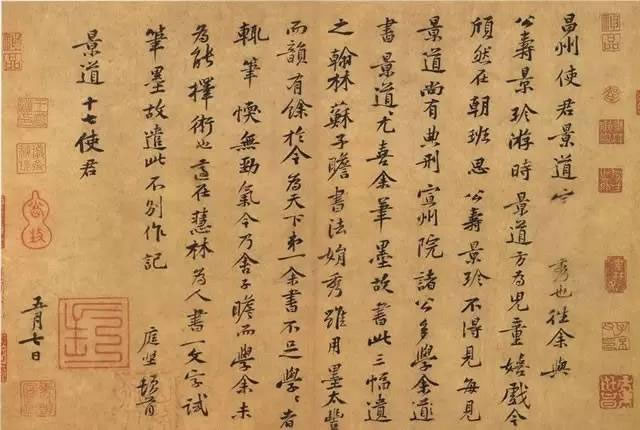 昌州使君景道宗秀也往余與
公壽景珍游時景道方為兒童嬉戲今
頎然在朝班思公壽景珍不得見每見
景道尚有典刑宣州院諸公多學余道
書景道尤喜余筆墨故書此三幅遺
之翰林蘇子瞻書法娟秀雖用墨太豐
而韻有餘於今為天下弟一余書不足學〻者
輒筆愞無勁氣今乃舍子瞻而學余未
為能擇術也適在慧林為人書一文字試
筆墨故遣此不別作記
庭堅頓首
景道十七使君
五月七日